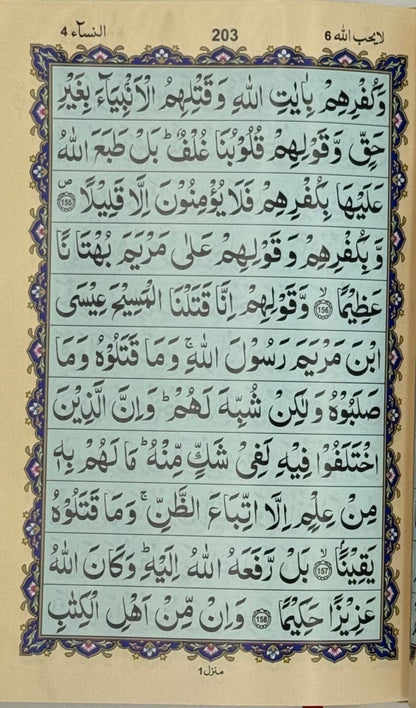 لایحب الله 6 203 النسآء 4
وَكُفْرِهِمْ بِاٰيٰتِ اللّٰهِ وَقَتْلِهِمُ الْاَنْۢبِيَآءَ بِغَيْرِ
حَقٍّ وَّقَوْلِهِمْ قُلُوْبُنَا غُلْفٌ ؕ بَلْ طَبَعَ اللّٰهُ
عَلَيْهَا بِكُفْرِهِمْ فَلَا يُؤْمِنُوْنَ اِلَّا قَلِيْلًا ۪ 155
وَّبِكُفْرِهِمْ وَقَوْلِهِمْ عَلٰى مَرْيَمَ بُهْتَانًا
عَظِيْمًا ۙ 156 وَّقَوْلِهِمْ اِنَّا قَتَلْنَا الْمَسِيْحَ عِيْسَى
ابْنَ مَرْيَمَ رَسُوْلَ اللّٰهِ ۚ وَمَا قَتَلُوْهُ وَمَا
صَلَبُوْهُ وَلٰكِنْ شُبِّهَ لَهُمْ ؕ وَاِنَّ الَّذِيْنَ
اخْتَلَفُوْا فِيْهِ لَفِيْ شَكٍّ مِّنْهُ ؕ مَا لَهُمْ بِهٖ
مِنْ عِلْمٍ اِلَّا اتِّبَاعَ الظَّنِّ ۚ وَمَا قَتَلُوْهُ
يَقِيْنًۢا ۙ 157 بَلْ رَّفَعَهُ اللّٰهُ اِلَيْهِ ؕ وَكَانَ اللّٰهُ
عَزِيْزًا حَكِيْمًا 158 وَاِنْ مِّنْ اَهْلِ الْكِتٰبِ
منزل 1